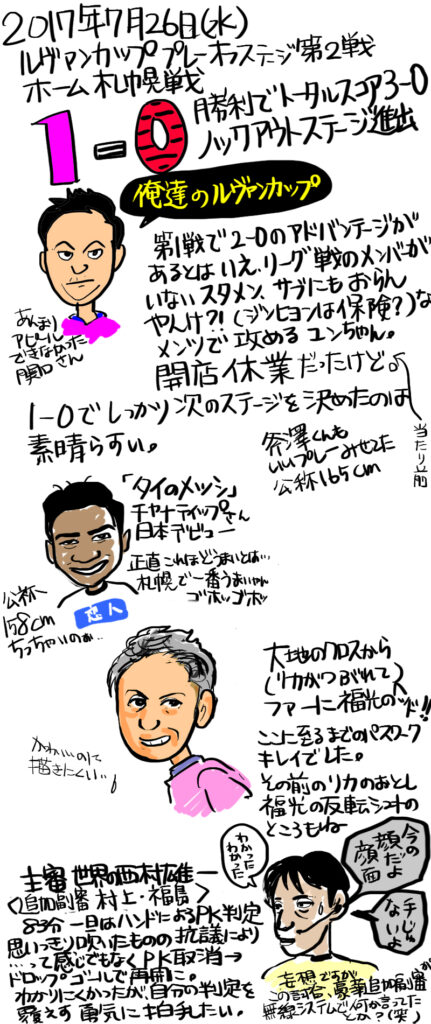 2017年7月26日(水)
ルヴァンカッププレーオフステージ第2戦
ホーム札幌戦
1-0
勝利でトータルスコア3-0
ノックアウトステージ進出
俺達のルヴァンカップ
あんまり
アピール
できなかった
関口さん
第1戦で2-0のアドバンテージが
あるとはいえ、リーグ戦のメンバーが
いないスタメン、サブにもおらん
やんけ?!(ジンヒョンは保険?)な
メンツで攻めるユンちゃん。
開店休業だったけど。
当たり前
1-0でしっかり次のステージを決めたのは
素晴らすぃ。
斧澤くんも
いいプレーみせてた
公称165cm
「タイのメッシ」
チャナティップさん
日本デビュー
正直これほどうまいとは…
札幌で一番うまいやん
ゴホッゴホッ
公称
158cm
ちっちゃいのぉ…
恋人
大地のクロスから
(リカがつぶれて)
ファーに福光のヘッド!!
ここに至るまでのパスワーク
キレイでした。
その前のリカのおとし
福光の反転シュートの
ところもねー
かわいいのに
描きにくい…
主審 世界の西村雄一
<追加副審 村上・福島>
83分 一旦はハンドによるPK判定
思いっきり吹いたものの 抗議により
…って感じでもなくPK取消→
ドロップゴールで再開に。
わかりにくかったが、自分の判定を
覆えす 勇気に拍手したい。
わかった
わかった
今の
顔だよ
顔面
手じゃ
ないよ
妄想ですが
この試合、豪華追加副審が
無線システムで何か言ってた
とか?(笑)